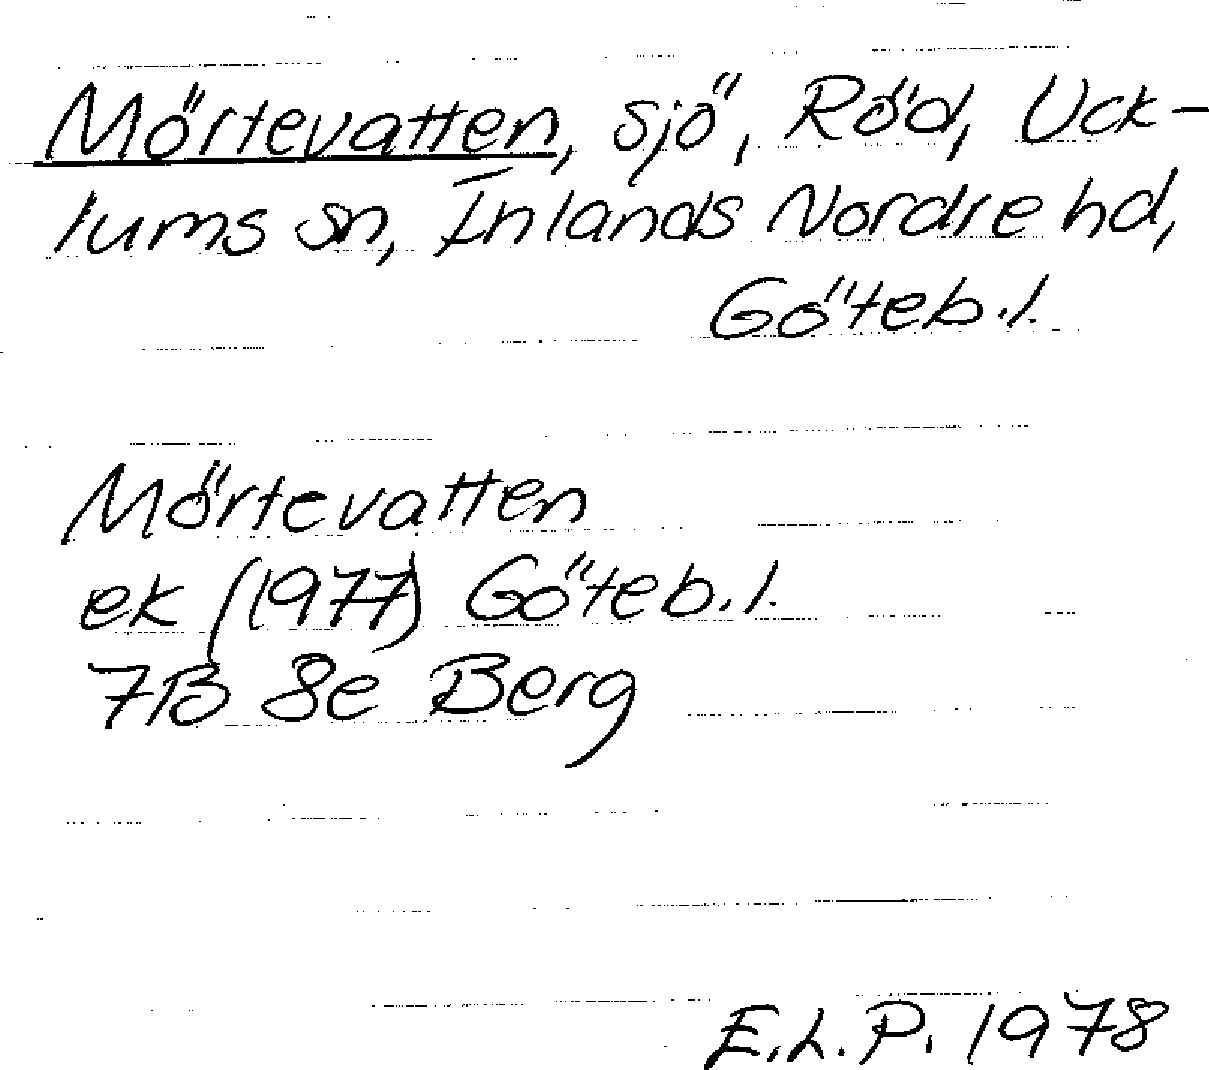 Mörtevatten, sjö, Röd, Uck-
lums sn, Inlands Nordre hd,
Göteb. l.
Mörtevatten
ek (1977) Göteb. l.
7B 8e Berg
E.L.P. 1978